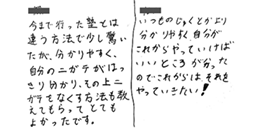 今まで行った塾とは
違う方法で少し驚い
たが、分かりやすく、
自分のニガテがはっ
きり分かり、その上ニ
ガテをなくす方法も教
えてもらってとても
よかったです。
いつものじゅくとかより
分かりやすく自分が
これからやっていけば
いいところが分かった
のでこれからは それを
やっていきたい!